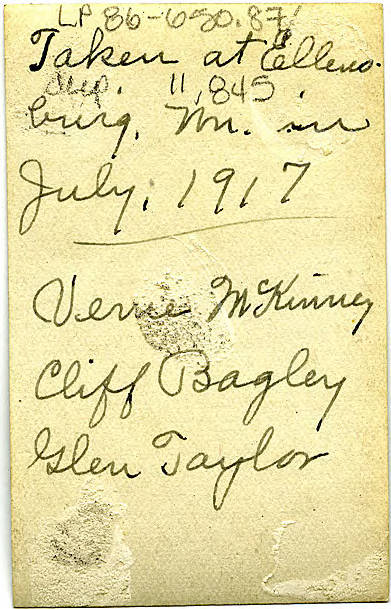 LP 86-650.87
Taken at Ellens-
dup. 11,845
burg, Wn. in
July, 1917
Verne McKinney
Cliff Bagley
Glen Taylor